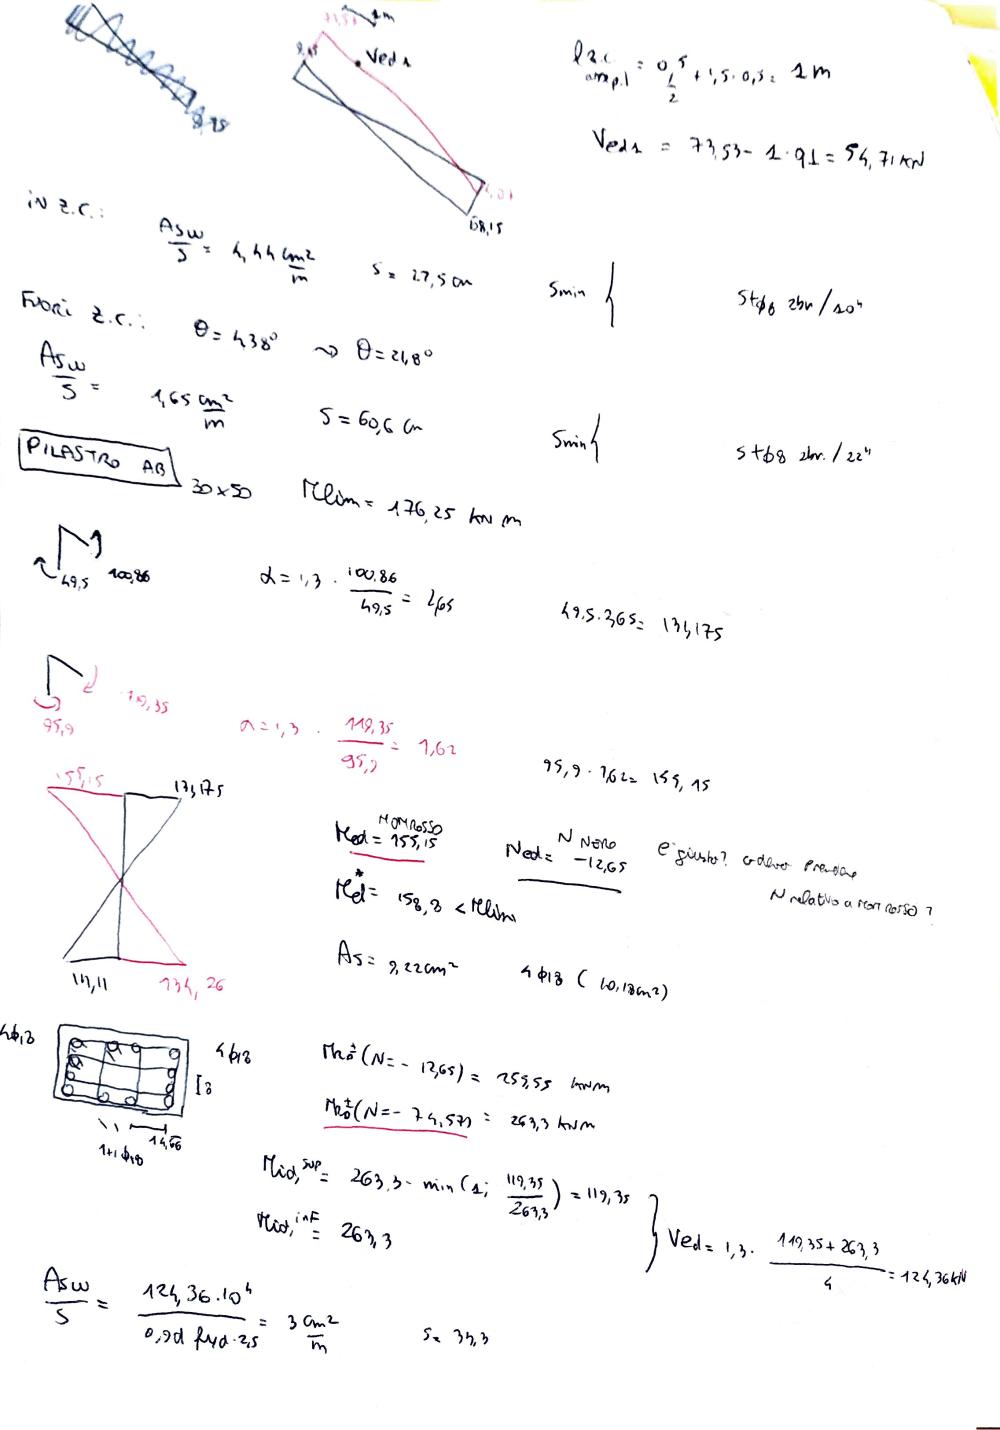 1m
Ved1
68,15
lz.c. ampl = 0,5/2 + 1,5·0,5 = 1m
Ved1 = 73,53 - 1·91 = 54,71 kN
in z.c.: Asw/s = 4,44 cm²/m s = 27,5 cm smin { stφ8 2br/10"
Fuori z.c.: θ = 4,38° ⇝ θ = 21,8°
Asw/s = 1,65 cm²/m s = 60,6 cm smin { stφ8 2br./22"
PILASTRO AB 30x50 Mlim = 176,25 kN m
49,5 100,86 α = 1,3 · 100,86/49,5 = 2,65 49,5·2,65 = 131,175
119,35
95,9 α = 1,3 · 119,35/95,9 = 1,62 95,9·1,62 = 155,15
155,15 131,175
Med = 155,15 MOM ROSSO Ned = -12,65 N NERO E' giusto? o devo prendere
N relativo a mom rosso?
Md* = 158,8 < Mlim
As = 9,22 cm² 4φ18 (10,18 cm²)
111,11 134,26
4φ18 4φ18
[8
14,66
1+1φ18
MRd±(N = -12,65) = 255,55 kNm
MRd±(N = -74,57) = 263,3 kNm
Mid,sup = 263,3 · min(1; 119,35/263,3) = 119,35
Mid,inf = 263,3
} Ved = 1,3 · 119,35+263,3/4 = 124,36 kN
Asw/s = 124,36·10⁴/0,9d fyd·2,5 = 3 cm²/m s = 33,3